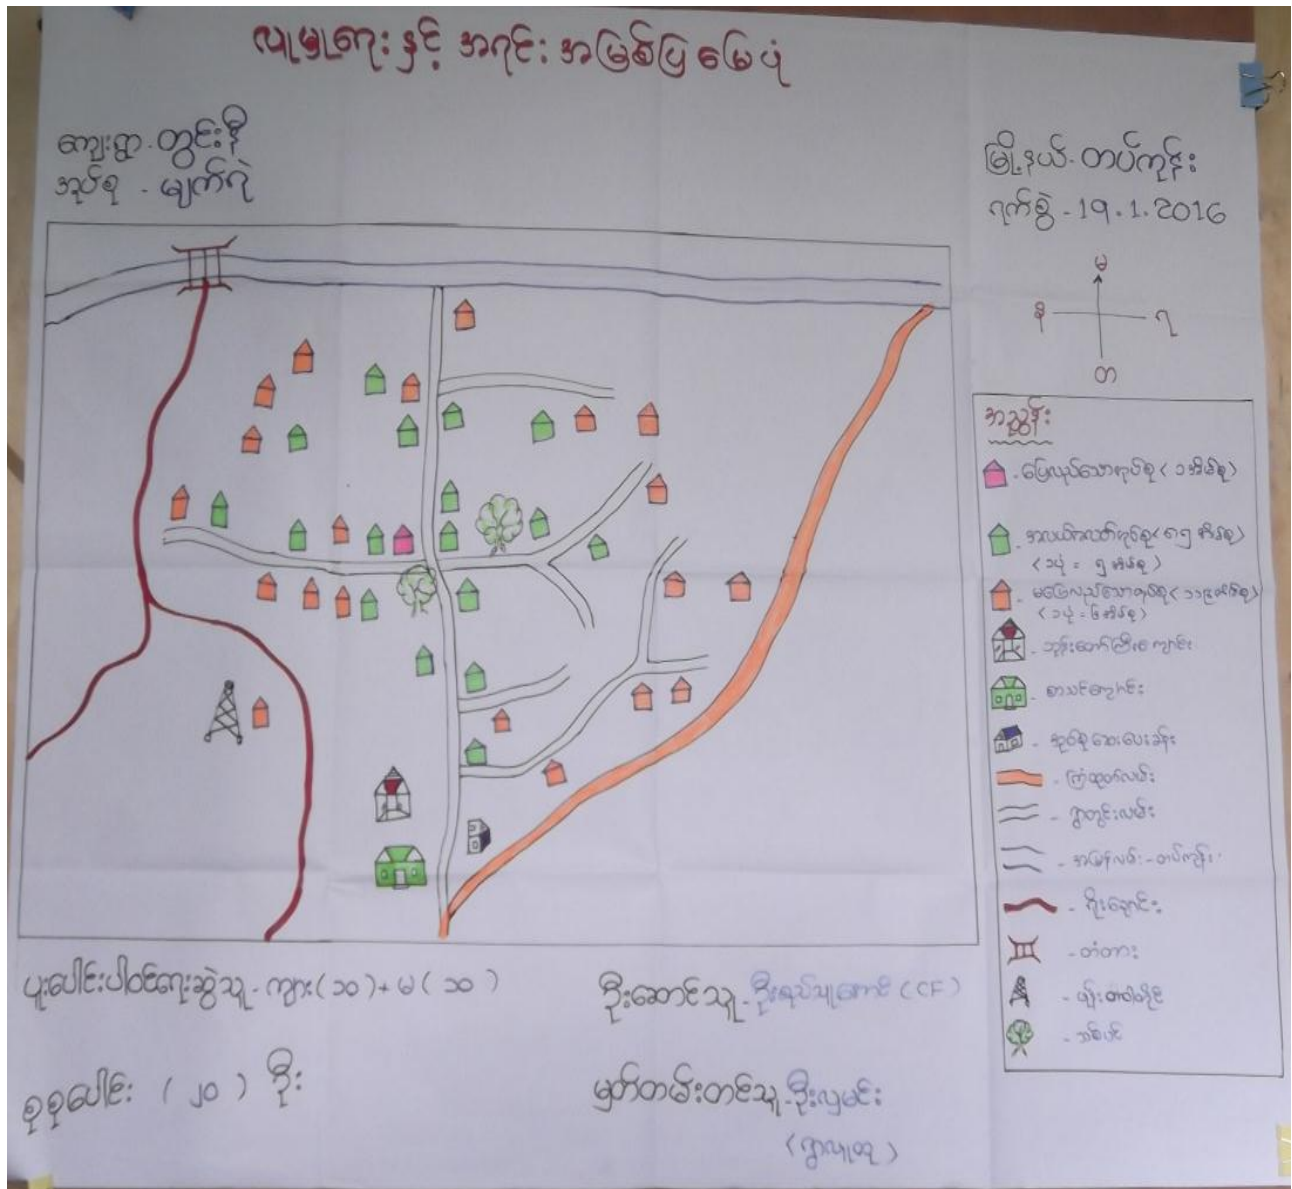 လူမှုရေး နှင့် အရင်းအမြစ်ပြ မြေပုံ
ကျေးရွာ - တွင်းနီ
အုပ်စု - မျက်ရဲ
မြို့နယ် - တပ်ကုန်း
ရက်စွဲ - 19.1.2016
မ
န
ရ
တ
အညွှန်း
- ပြေလည်သောအုပ်စု (၁အိမ်စု)
- အလယ်အလတ်အုပ်စု
(၁ပုံ = ၅ အိမ်စု)
- မပြေလည်သောအုပ်စု
(၁ပုံ = ၆အိမ်စု)
- ဘုန်းတော်ကြီးကျောင်း
- စာသင်ကျောင်း
- အုပ်စုဆေးပေးခန်း
- ကြံထုတ်လမ်း
- ရွာတွင်းလမ်း
- ရိုးချောင်း
- တံတား
- ဖုန်းတာဝါတိုင်
- သစ်ပင်
ပူးပေါင်းပါဝင်ရေးဆွဲသူ - ကျား(၁၀) + မ(၁၀)
စုစုပေါင်း (၂၀) ဦး
ဦးဆောင်သူ - (CF)
မှတ်တမ်းတင်သူ - ဦးလှမင်း
(ရွာလူထု)